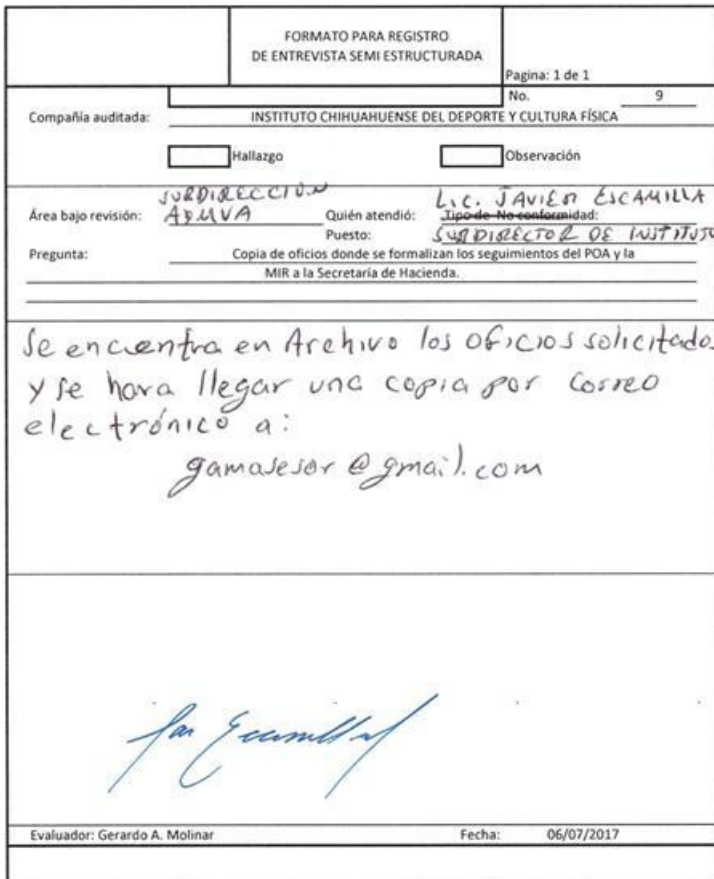 FORMATO PARA REGISTRO
DE ENTREVISTA SEMI ESTRUCTURADA
Pagina: 1 de 1
No. 9
Compañia auditada: INSTITUTO CHIHUAHUENSE DEL DEPORTE Y CULTURA FÍSICA
Hallazgo Observación
SUBDIRECCIÓN
Área bajo revisión: ADMVA Quién atendió: LIC. JAVIER ESCAMILLA
Tipo de No conformidad:
Puesto: SUBDIRECTOR DE INSTITUTO
Pregunta: Copia de oficios donde se formalizan los seguimientos del POA y la
MIR a la Secretaría de Hacienda.
Se encuentra en Archivo los oficios solicitados
y se hara llegar una copia por correo
electrónico a:
gamasesor@gmail.com
Evaluador: Gerardo A. Molinar Fecha: 06/07/2017